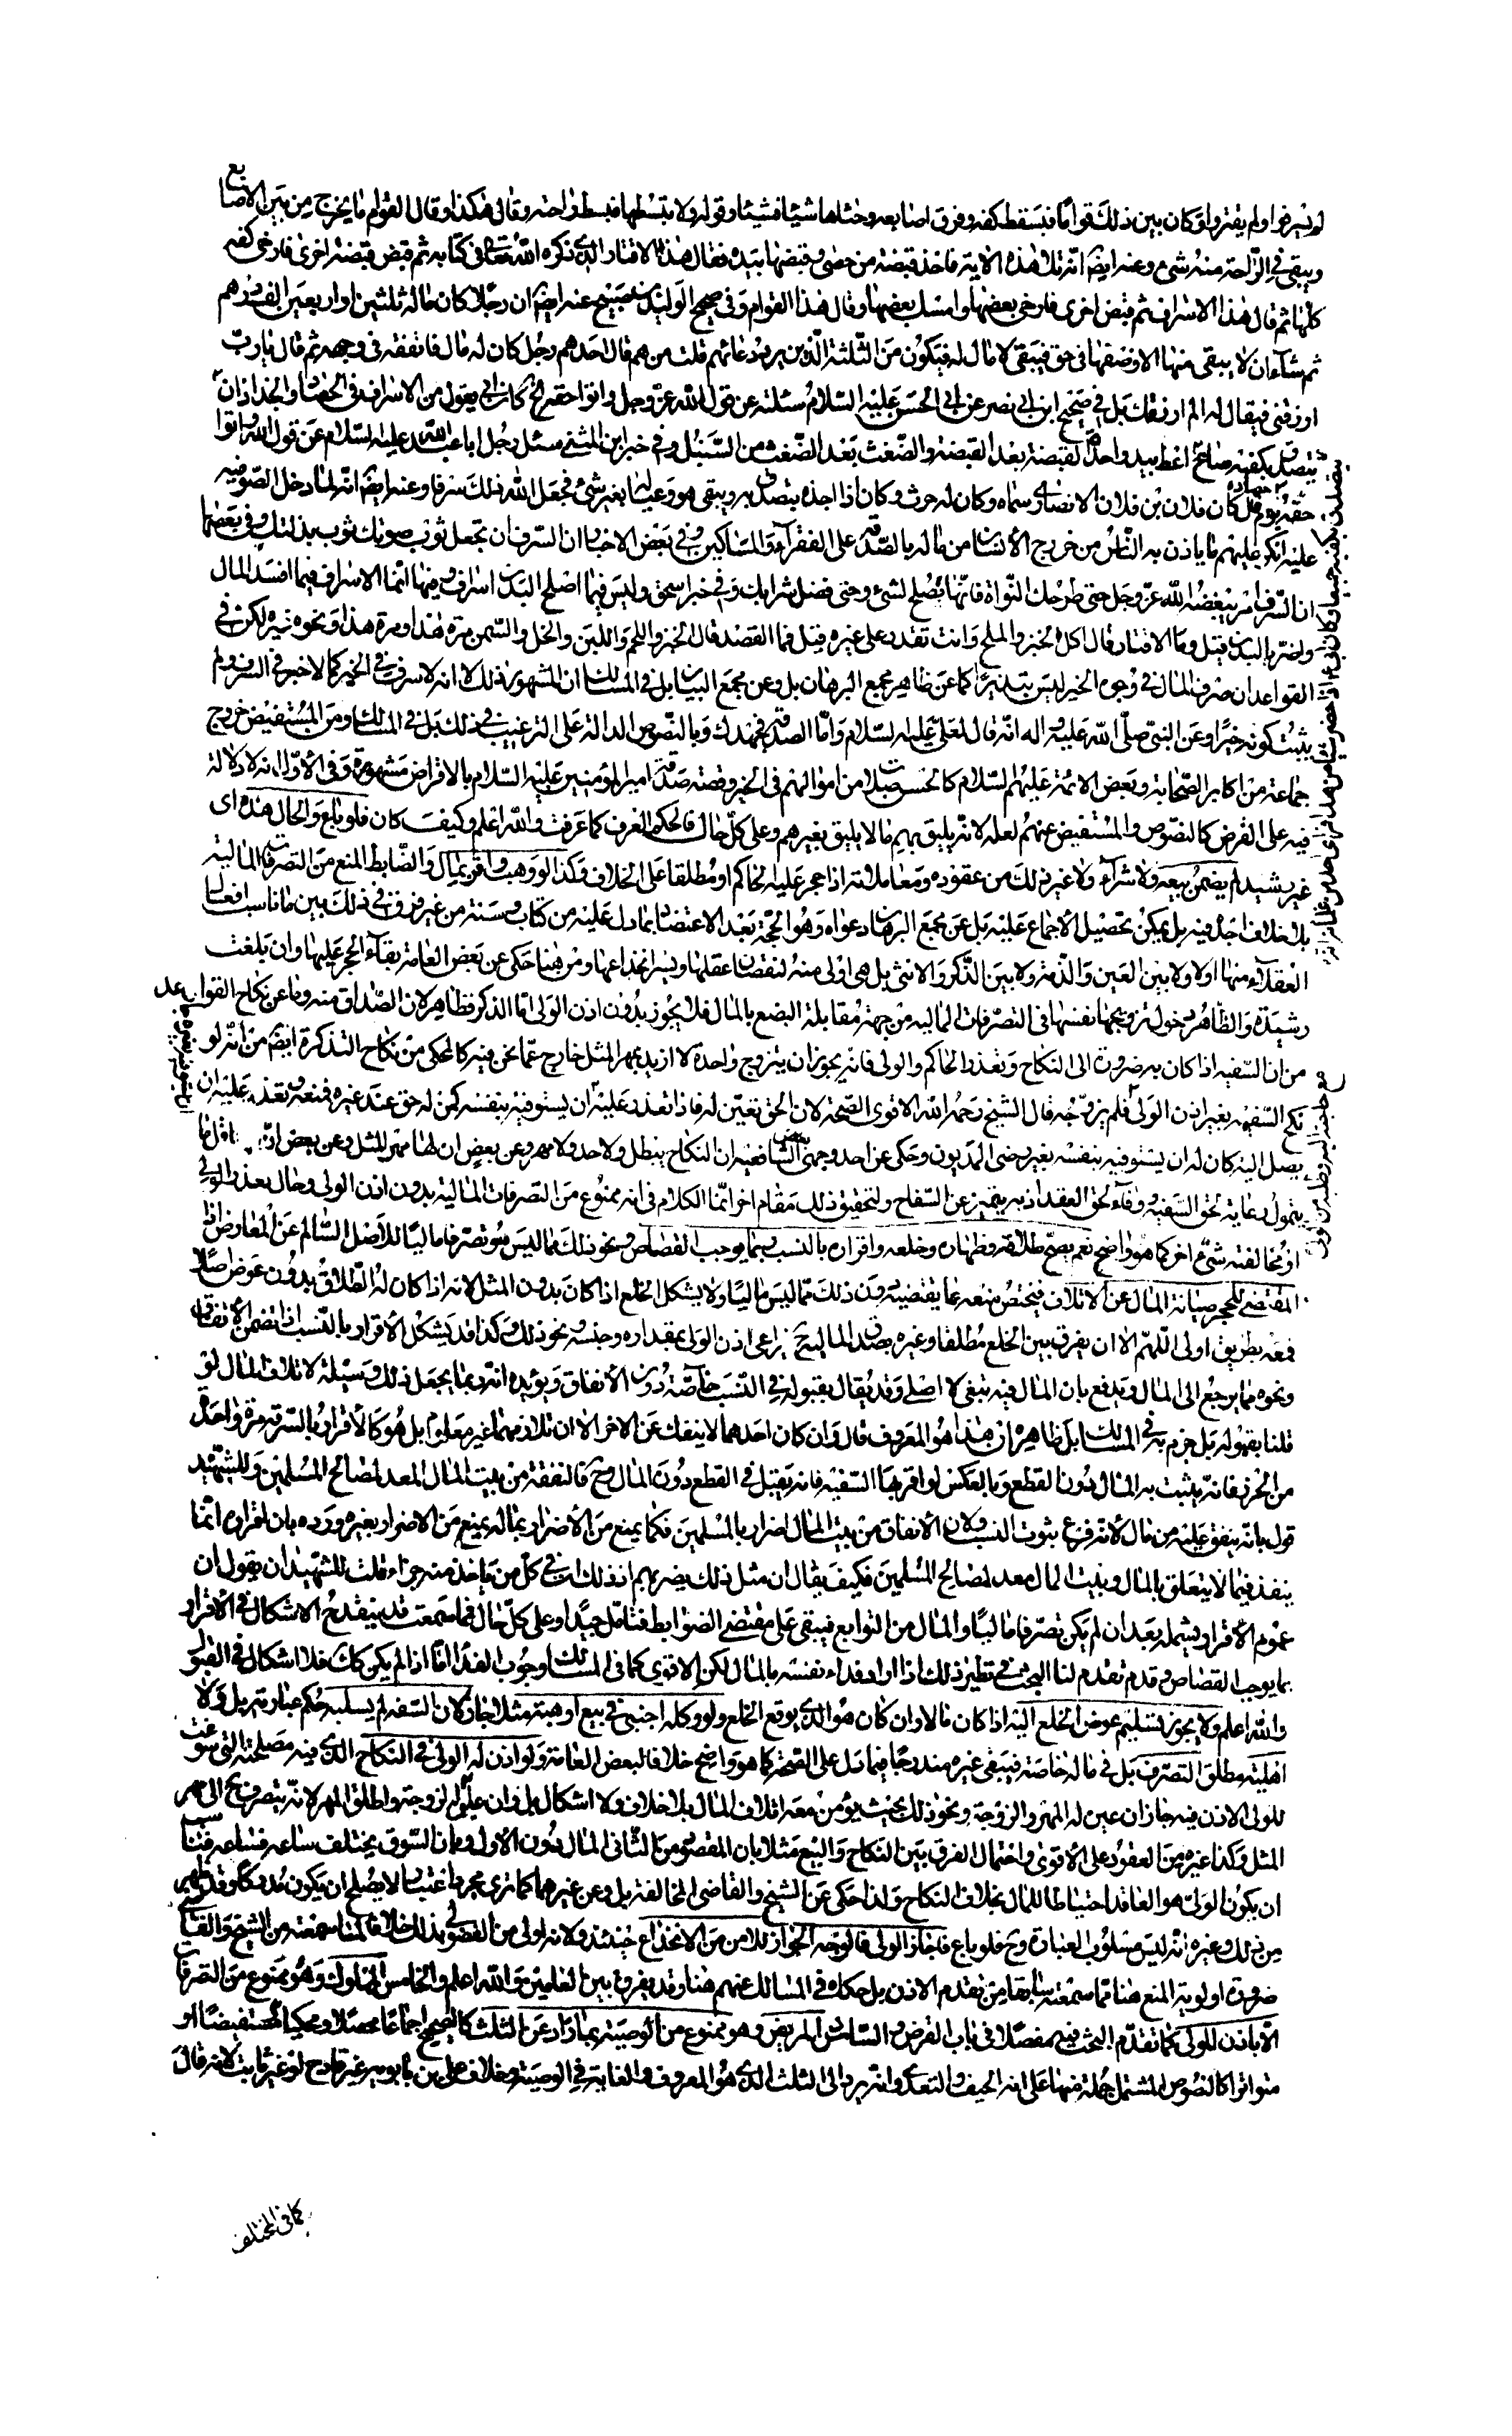 لم يسرفوا ولم يقتروا وكان بين ذلك قواما فبسط كفه وفرق اصابعه وحناها شيئا فشيئا وقوله ولا تبسطها فبسط راحته وقال هكذا وقال القوام ما يخرج من بين الاصابع
ويبقى في الراحة منه شيء وعنه ايضا انه تلا هذه الاية فاخذ قبضة من حصى وقبضها بيده فقال هذا الاقتار الذي ذكره الله تعالى في كتابه ثم قبض قبضة اخرى فارخى كفه
كلها ثم قال هذا الاسراف ثم قبض اخرى فارخى بعضها وامسك بعضها وقال هذا القوام وفي صحيح الوليد بن صبيح عنه ايضا ان رجلا كان له مال ثلثين او اربعين الف درهم
ثم شاء ان لا يبقى منها الا وضعها في حق فيبقى لا مال له فيكون من الثلثة الذين يرد دعائهم قلت من هم قال احدهم رجل كان له مال فانفقه في وجهه ثم قال يا رب
ارزقني فيقال له الم ارزقك بل في صحيح ابن ابي نصر عن ابي الحسن عليه السلام سئلته عن قول الله عز وجل واتوا حقه الخ كان ابي يقول من الاسراف في الحصاد والجذاذ ان
يتصدق بكفيه صاح اعط بيد واحدة القبضة بعد القبضة والضغث بعد الضغث من السنبل وفي خبر ابن المثنى سئل رجل ابا عبد الله عليه السلام عن قول الله واتوا
حقه يوم حصاده قال كان فلان بن فلان الانصاري سماه وكان له حرث وكان اذا اجذه يتصدق به ويبقى هو وعياله بغير شيء فجعل الله ذلك سرفا وعنه ايضا انه لما دخل الصوفية
عليه انكر عليهم ما ياذن به الناس من خروج الانسان من ماله بالصدقة على الفقراء والمساكين وفي بعض الاخبار ان السرف ان تجعل ثوب صونك ثوب بذلتك وفي بعضها
ان السرف امر يبغضه الله عز وجل حتى طرحك النواة فانها تصلح لشيء وحتى فضل شرابك وفي خبر اسحق وليس فيما اصلح البدن اسراف ومنها انما الاسراف فيما افسد المال
واضر بالبدن قيل وما الاقتار قال اكل الخبز والملح وانت تقدر على غيره قيل فما القصد قال الخبز واللحم واللبن والخل والسمن مرة هذا ومرة هذا ونحوه غيره لكن في
القواعد ان صرف المال في وجوه الخير ليس بتبذير كما عن ظاهر مجمع البرهان بل وعن مجمع البيان بل في المسالك ان المشهور ذلك لانه لا سرف في الخير كما لا خير في السرف ولم
يثبت كونه خبرا وعن النبي صلى الله عليه واله انه قال لعلي عليه السلام واما الصدقة فجهدك وبالنصوص الدالة على الترغيب في ذلك بل في المسالك ومن المستفيض خروج
جماعة من اكابر الصحابة وبعض الائمة عليهم السلام كالحسن من اموالهم في الخير وقصة صدقة امير المؤمنين عليه السلام بالاقراض مشهورة وفي الاول انه لا دلالة
فيه على الفرض كالنصوص والمستفيض عنهم لعله لانه يليق بهم ما لا يليق بغيرهم وعلى كل حال فالحكم العرف كما عرفت والله اعلم وكيف كان فلو باع والحال هذه اي
غير رشيد لم يمض بيعه ولا شراؤه ولا غير ذلك من عقوده ومعاملاته اذا حجر عليه الحاكم او مطلقا على الخلاف وكذا لو وهب او اقر بمال والضابط المنع من التصرفات المالية
بلا خلاف اجده فيه بل يمكن تحصيل الاجماع عليه بل عن مجمع البرهان دعواه وهو الحجة بعد الاعتضاد بما دل عليه من كتاب وسنة من غير فرق في ذلك بين ما ناسب افعال
العقلاء منها اولا ولا بين العين والذمة ولا بين الذكر والانثى بل هي اولى منه لنقصان عقلها ويسر انخداعها ومن هنا حكي عن بعض العامة بقاء الحجر عليها وان بلغت
رشيدة والظاهر دخول تزويجها نفسها في التصرفات المالية من جهة مقابلة البضع بالمال فلا يجوز بدون اذن الولي اما الذكر فظاهر لان الصداق منه وما عن نكاح القواعد
من ان السفيه اذا كان به ضرورة الى النكاح وتعذر الحاكم والولي فانه يجوز ان يتزوج واحدة لا ازيد بمهر المثل خارج عما نحن فيه كالمحكي من نكاح التذكرة ايضا من انه لو
نكح السفيه بغير اذن الولي فلم يزوجه قال الشيخ رحمه الله الاقوى الصحة لان الحق تعين له فاذا تعذر عليه ان يستوفيه بنفسه كمن له حق عند غيره فمنعه وتعذر عليه ان
يصل اليه كان له ان يستوفيه بنفسه بغير رضى المديون وحكي عن احد وجهي الشافعية ان النكاح يبطل ولا حد ولا مهر وعن بعض ان لها مهر المثل وعن بعض اقل ما
يتمول رعاية لحق السفيه وفاء لحق العقد اذ به يتميز عن السفاح ولتحقيق ذلك مقام اخر انما الكلام في انه ممنوع من التصرفات المالية بدون اذن الولي وحال تعذر الولي
او مخالفته شيء اخر كما هو واضح نعم يصح طلاقه وظهاره وخلعه واقراره بالنسب وبما يوجب القصاص ونحو ذلك مما ليس هو تصرفا ماليا للاصل السالم عن المعارض اذ
المقتضي للحجر صيانة المال عن الاتلاف فيختص منعه بما يقتضيه دون ذلك مما ليس ماليا ولا يشكل الخلع اذا كان بدون المثل لانه اذا كان له الطلاق بدون عوض اصلا
فمعه بطريق اولى اللهم الا ان يفرق بين الخلع مطلقا وغيره بصدق المالية ح يراعى اذن الولي بمقداره وجنسه ونحو ذلك وكذا قد يشكل الاقرار بالنسب اذا تضمن الانفاق
ونحوه مما يرجع الى المال ويدفع بان المال فيه تبعي لا اصلي وقد يقال بقبوله في النسب خاصة دون الانفاق ويؤيده انه ربما يجعل ذلك وسيلة لاتلاف المال لو
قلنا بقبوله بل جزم به في المسالك بل ظاهره ان هذا هو المعروف قال وان كان احدهما لا ينفك عن الاخر الا ان تلازمهما غير معلوم بل هو كالاقرار بالسرقة مرة واحدة
من الحر فانه يثبت به المال دون القطع وبالعكس لو اقر بها السفيه فانه يقبل في القطع دون المال وح فالنفقة من بيت المال المعد لمصالح المسلمين وللشهيد
قول بانه ينفق عليه من ماله لانه فرع ثبوت النسب ولان الانفاق من بيت المال اضرار بالمسلمين فكما يمنع من الاضرار بماله يمنع من الاضرار بغيره ورده بان اقراره انما
ينفذ فيما لا يتعلق بالمال وبيت المال معد لمصالح المسلمين فكيف يقال ان مثل ذلك يضر بهم اذ ذلك ات في كل من ياخذ منه جزاء قلت للشهيد ان يقول ان
عموم الاقرار يشمله بعد ان لم يكن تصرفا ماليا والمال من التوابع فيبقى على مقتضى الضوابط فتامل جيدا وعلى كل حال فما سمعت قد ينقدح الاشكال في الاقرار
بما يوجب القصاص وقد تقدم لنا البحث في نظير ذلك اذا اراد فداء نفسه بالمال لكن الاقوى كما في المسالك وجوب الفداء اما اذا لم يكن كك فلا اشكال في القبول
والله اعلم ولا يجوز تسليم عوض الخلع اليه اذا كان مالا وان كان هو الذي يوقع الخلع ولو وكله اجنبي في بيع او هبة مثلا جاز لان السفه لم يسلبه حكم عبارته بل ولا
اهلية مطلق التصرف بل في ماله خاصة فيبقى غيره مندرجا فيما دل على الصحة كما هو واضح خلافا لبعض العامة ولو اذن له الولي في النكاح الذي فيه مصلحته التي سوغت
للولي الاذن فيه جاز ان عين له المهر والزوجة ونحو ذلك بحيث يؤمن معه اتلاف المال بلا خلاف ولا اشكال بل وان لم يعين له الزوجة واطلق المهر لانه ينصرف ح الى مهر
المثل وكذا غيره من العقود على الاقوى واحتمال الفرق بين النكاح والبيع مثلا بان المقصود من الثاني المال دون الاول وبان السوق يختلف ساعة فساعة فناسب
ان يكون الولي هو العاقد احتياطا للمال بخلاف النكاح ولذا حكي عن الشيخ والقاضي المخالفة بل وعن غيرهما كما ترى مجرد اعتبار لا يصلح ان يكون مدركا وقد ظهر
من ذلك وغيره انه ليس مسلوب العبارة وح فلو باع فاجاز الولي فالوجه الجواز للامن من الانخداع حينئذ ولانه اولى من الفضولي بذلك خلافا لما سمعته من الشيخ والقاضي
ضرورة اولوية المنع هنا مما سمعته سابقا من تقدم الاذن بل حكاه في المسالك عنهم هنا وقد يفرق بين المقامين والله اعلم والخامس المملوك وهو ممنوع من التصرفات
الا باذن المولى كما تقدم البحث فيه مفصلا في باب القرض والسادس المريض وهو ممنوع من الوصية بما زاد عن الثلث كالصحيح اجماعا محصلا ومحكيا مستفيضا او
متواترا كالنصوص المشتمل جملة منها على انه الحيف والتعدي وانه يرد الى الثلث الذي هو المعروف والغاية في الوصية وخلاف علي بن بابويه غير قادح لو غير ثابت لانه قال
كما في المختلف